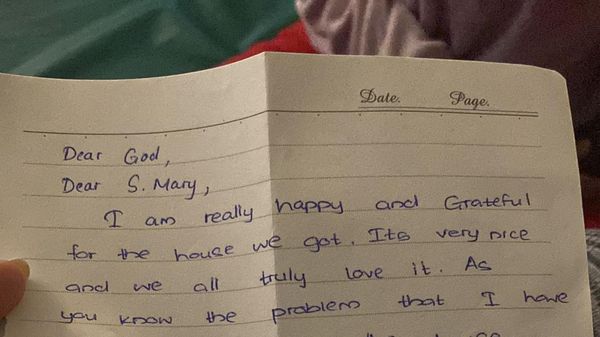 Date. Page.
Dear God,
Dear S. Mary,
I am really happy and Grateful
for the house we got. Its very nice
and we all truly love it. As
you know the problem that I have